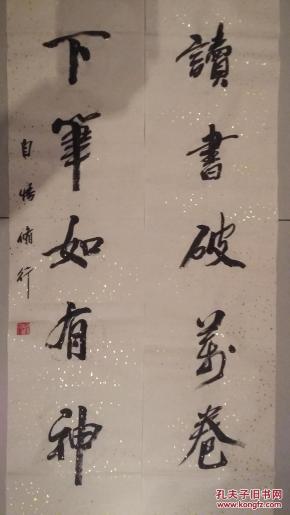 讀書破萬卷
下筆如有神
自悟脩行
孔夫子旧书网
KONGFZ.COM